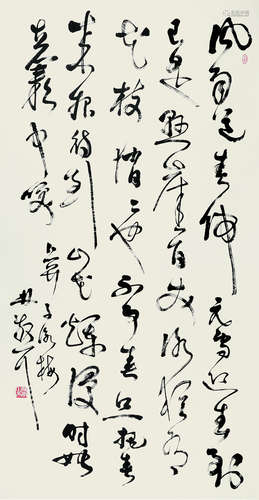 风雨送春归飞雪迎春到
已是悬崖百丈冰犹有
花枝俏俏也不争春只把春
来报待到山花烂漫时她
在丛中笑卜算子咏梅